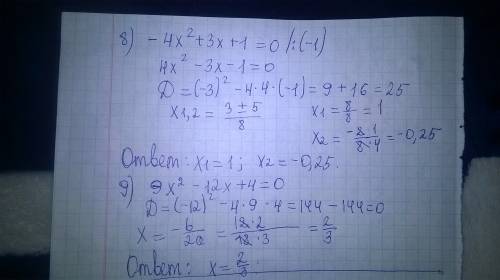 8) - 4x² + 3x + 1 = 0 /:(-1)
4x² - 3x - 1 = 0
D = (-3)² - 4·4·(-1) = 9 + 16 = 25
x1,2 = (3 ± 5)/8 x1 = 8/8 = 1
x2 = -2·1/8·4 = -0,25
Ответ: x1 = 1; x2 = -0,25.
9) 9x² - 12x + 4 = 0
D = (-12)² - 4·9·4 = 144 - 144 = 0
x = -b/2a = 12·2/12·3 = 2/3
Ответ: x = 2/3.